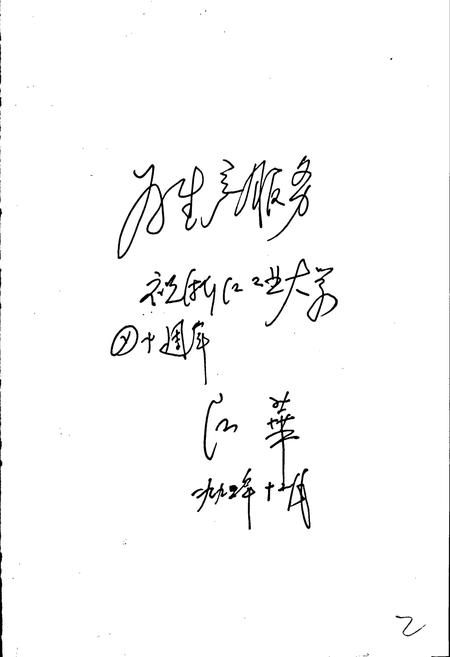 为生产服务
祝浙江工业大学
四十周年
江華
一九九三年十二月